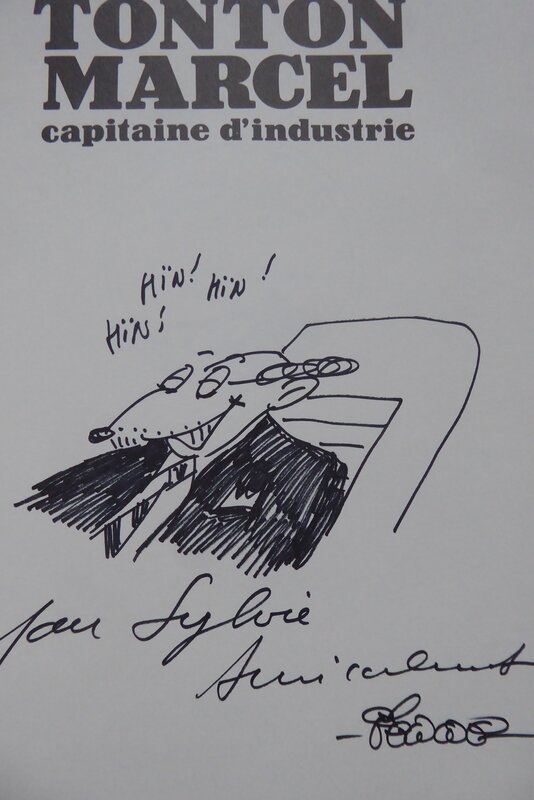 TONTON
MARCEL
capitaine d'industrie
HïN!
HïN!
HïN!
pour Sylvie
Amicalement